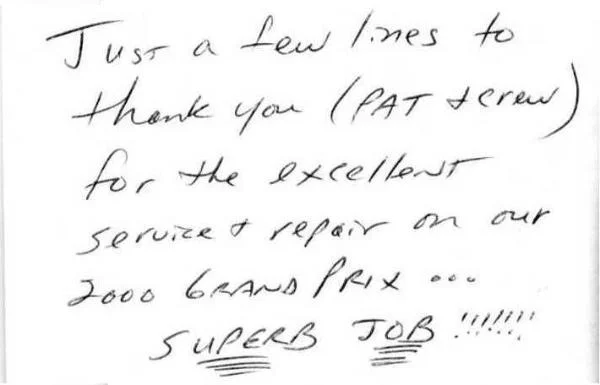 Just a few lines to
thank you (PAT + crew)
for the excellent
service + repair on our
2000 GRAND PRIX ...
SUPERB JOB !!!!!!!